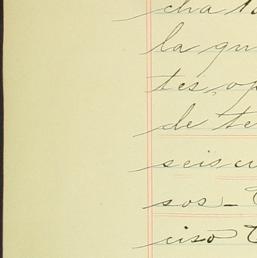 cha
la qu
tes, op
de te
seis cu
sos—
ciso